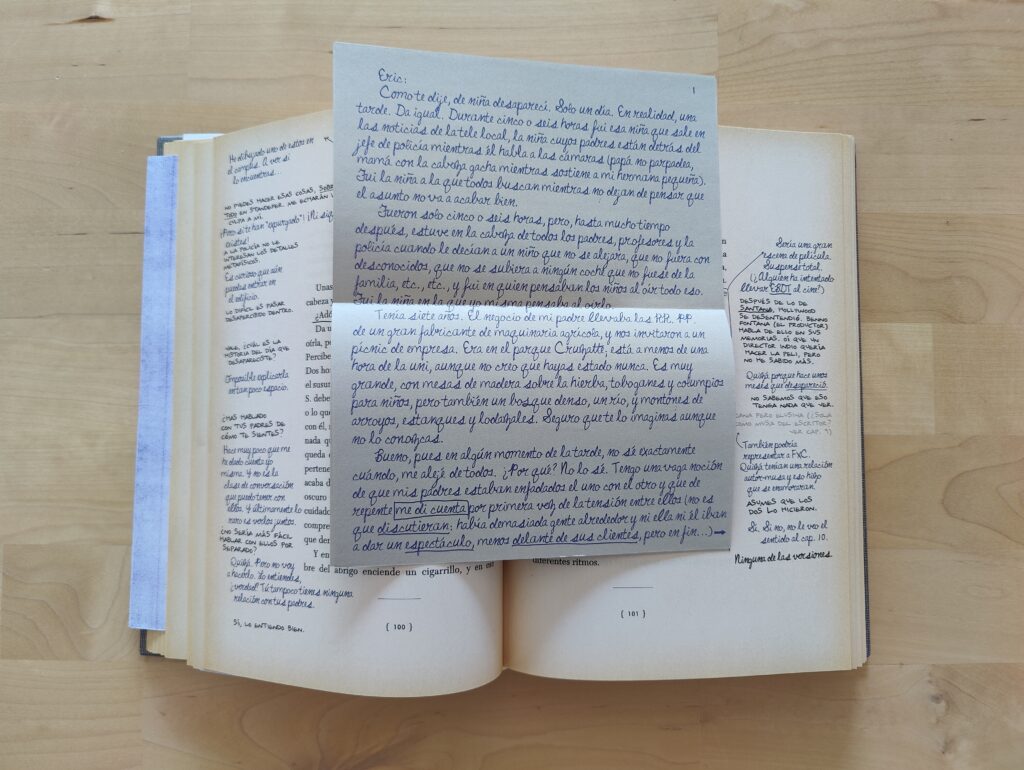 He dibujado uno de estos en
el campus. A ver si
lo encuentras...
NO PUEDES HACER ESAS COSAS, SOBRE
TODO EN STANDEFER. ME ECHARÁN LA
CULPA A MÍ.
¡Pero si te han "expurgado"! ¡Ni siquiera
existes!
A LA POLICÍA NO LE
INTERESAN LOS DETALLES
METAFÍSICOS.
Es curioso que aún
puedas entrar en
el edificio.
LO DIFÍCIL ES PASAR
DESAPERCIBIDO DENTRO.
VALE, ¿CUÁL ES LA
HISTORIA DEL DÍA QUE
DESAPARECISTE?
Imposible explicarla
en tan poco espacio.
¿HAS HABLADO
CON TUS PADRES DE
CÓMO TE SIENTES?
Hace muy poco que me
he dado cuenta yo
misma. Y no es la
clase de conversación
que puedo tener con
ellos. Y últimamente lo
raro es verlos juntos.
¿NO SERÍA MÁS FÁCIL
HABLAR CON ELLOS POR
SEPARADO?
Quizá. Pero no voy
a hacerlo. Lo entiendes,
¿verdad? Tú tampoco tienes ninguna
relación con tus padres.
SÍ, LO ENTIENDO BIEN.
Unas
cabeza y
¿Adó
Da u
oírla, po
Percibe
Dos ho
el susur
S. debe
o lo que
con él.
nada q
pertene
acaba d
oscuro
cuando
compre
que de
Y en
bre del abrigo enciende un cigarrillo, y en es
{ 100 }
1
Eric:
Como te dije, de niña desaparecí. Solo un día. En realidad, una
tarde. Da igual. Durante cinco o seis horas fui esa niña que sale en
las noticias de la tele local, la niña cuyos padres están detrás del
jefe de policía mientras él habla a las cámaras (papá no parpadea,
mamá con la cabeza gacha mientras sostiene a mi hermana pequeña).
Fui la niña a la que todos buscan mientras no dejan de pensar que
el asunto no va a acabar bien.
Fueron solo cinco o seis horas, pero, hasta mucho tiempo
después, estuve en la cabeza de todos los padres, profesores y la
policía cuando le decían a un niño que no se alejara, que no fuera con
desconocidos, que no se subiera a ningún coche que no fuese de la
familia, etc., etc., y fui en quien pensaban los niños al oír todo eso.
Fui la niña en la que yo misma pensaba al oírlo.
Tenía siete años. El negocio de mi padre llevaba las RR. PP.
de un gran fabricante de maquinaria agrícola, y nos invitaron a un
picnic de empresa. Era en el parque Cruzatte, está a menos de una
hora de la uni, aunque no creo que hayas estado nunca. Es muy
grande, con mesas de madera sobre la hierba, toboganes y columpios
para niños, pero también un bosque denso, un río, y montones de
arroyos, estanques y lodazales. Seguro que te lo imaginas aunque
no lo conozcas.
Bueno, pues en algún momento de la tarde, no sé exactamente
cuándo, me alejé de todos. ¿Por qué? No lo sé. Tengo una vaga noción
de que mis padres estaban enfadados el uno con el otro y que de
repente me di cuenta por primera vez de la tensión entre ellos (no es
que discutieran: había demasiada gente alrededor y ni ella ni él iban
a dar un espectáculo, menos delante de sus clientes, pero en fin...) →
diferentes ritmos.
{ 101 }
Sería una gran
escena de película.
Suspense total.
(¿Alguien ha intentado
llevar EBDT al cine?)
DESPUÉS DE LO DE
SANTANA, HOLLYWOOD
SE DESENTENDIÓ. BENNO
FONTANA (EL PRODUCTOR)
HABLA DE ELLO EN SUS
MEMORIAS. OÍ QUE UN
DIRECTOR INDIO QUERÍA
HACER LA PELI, PERO
NO HE SABIDO MÁS.
Quizá porque hace unos
meses que desapareció.
NO SABEMOS QUE ESO
TENGA NADA QUE VER.
PERO ELUSIVA (¿SOLA
COMO MUSA DEL ESCRITOR?
VER CAP. 9)
También podría
representar a FXC.
Quizá tenían una relación
autor-musa y eso hizo
que se enamoraran.
ASUMES QUE LOS
DOS LO HICIERON.
Sí. Si no, no le veo el
sentido al cap. 10.
Ninguna de las versiones.